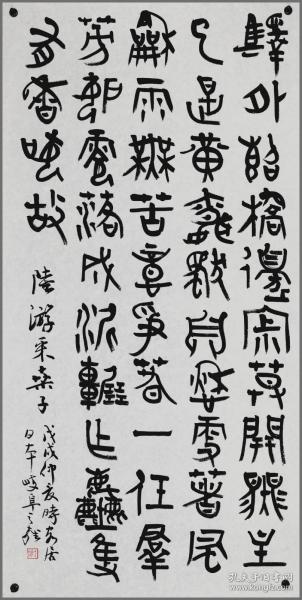 驛外斷橋邊寂莫開無主
已是黃昏獨自愁更著風
龢雨無苦意爭春一任羣
芳妒零落成泥輾作塵隻
有香如故
陸游采桑子
戊戌仲夏時客居
日本岐阜之
孔夫子旧书网